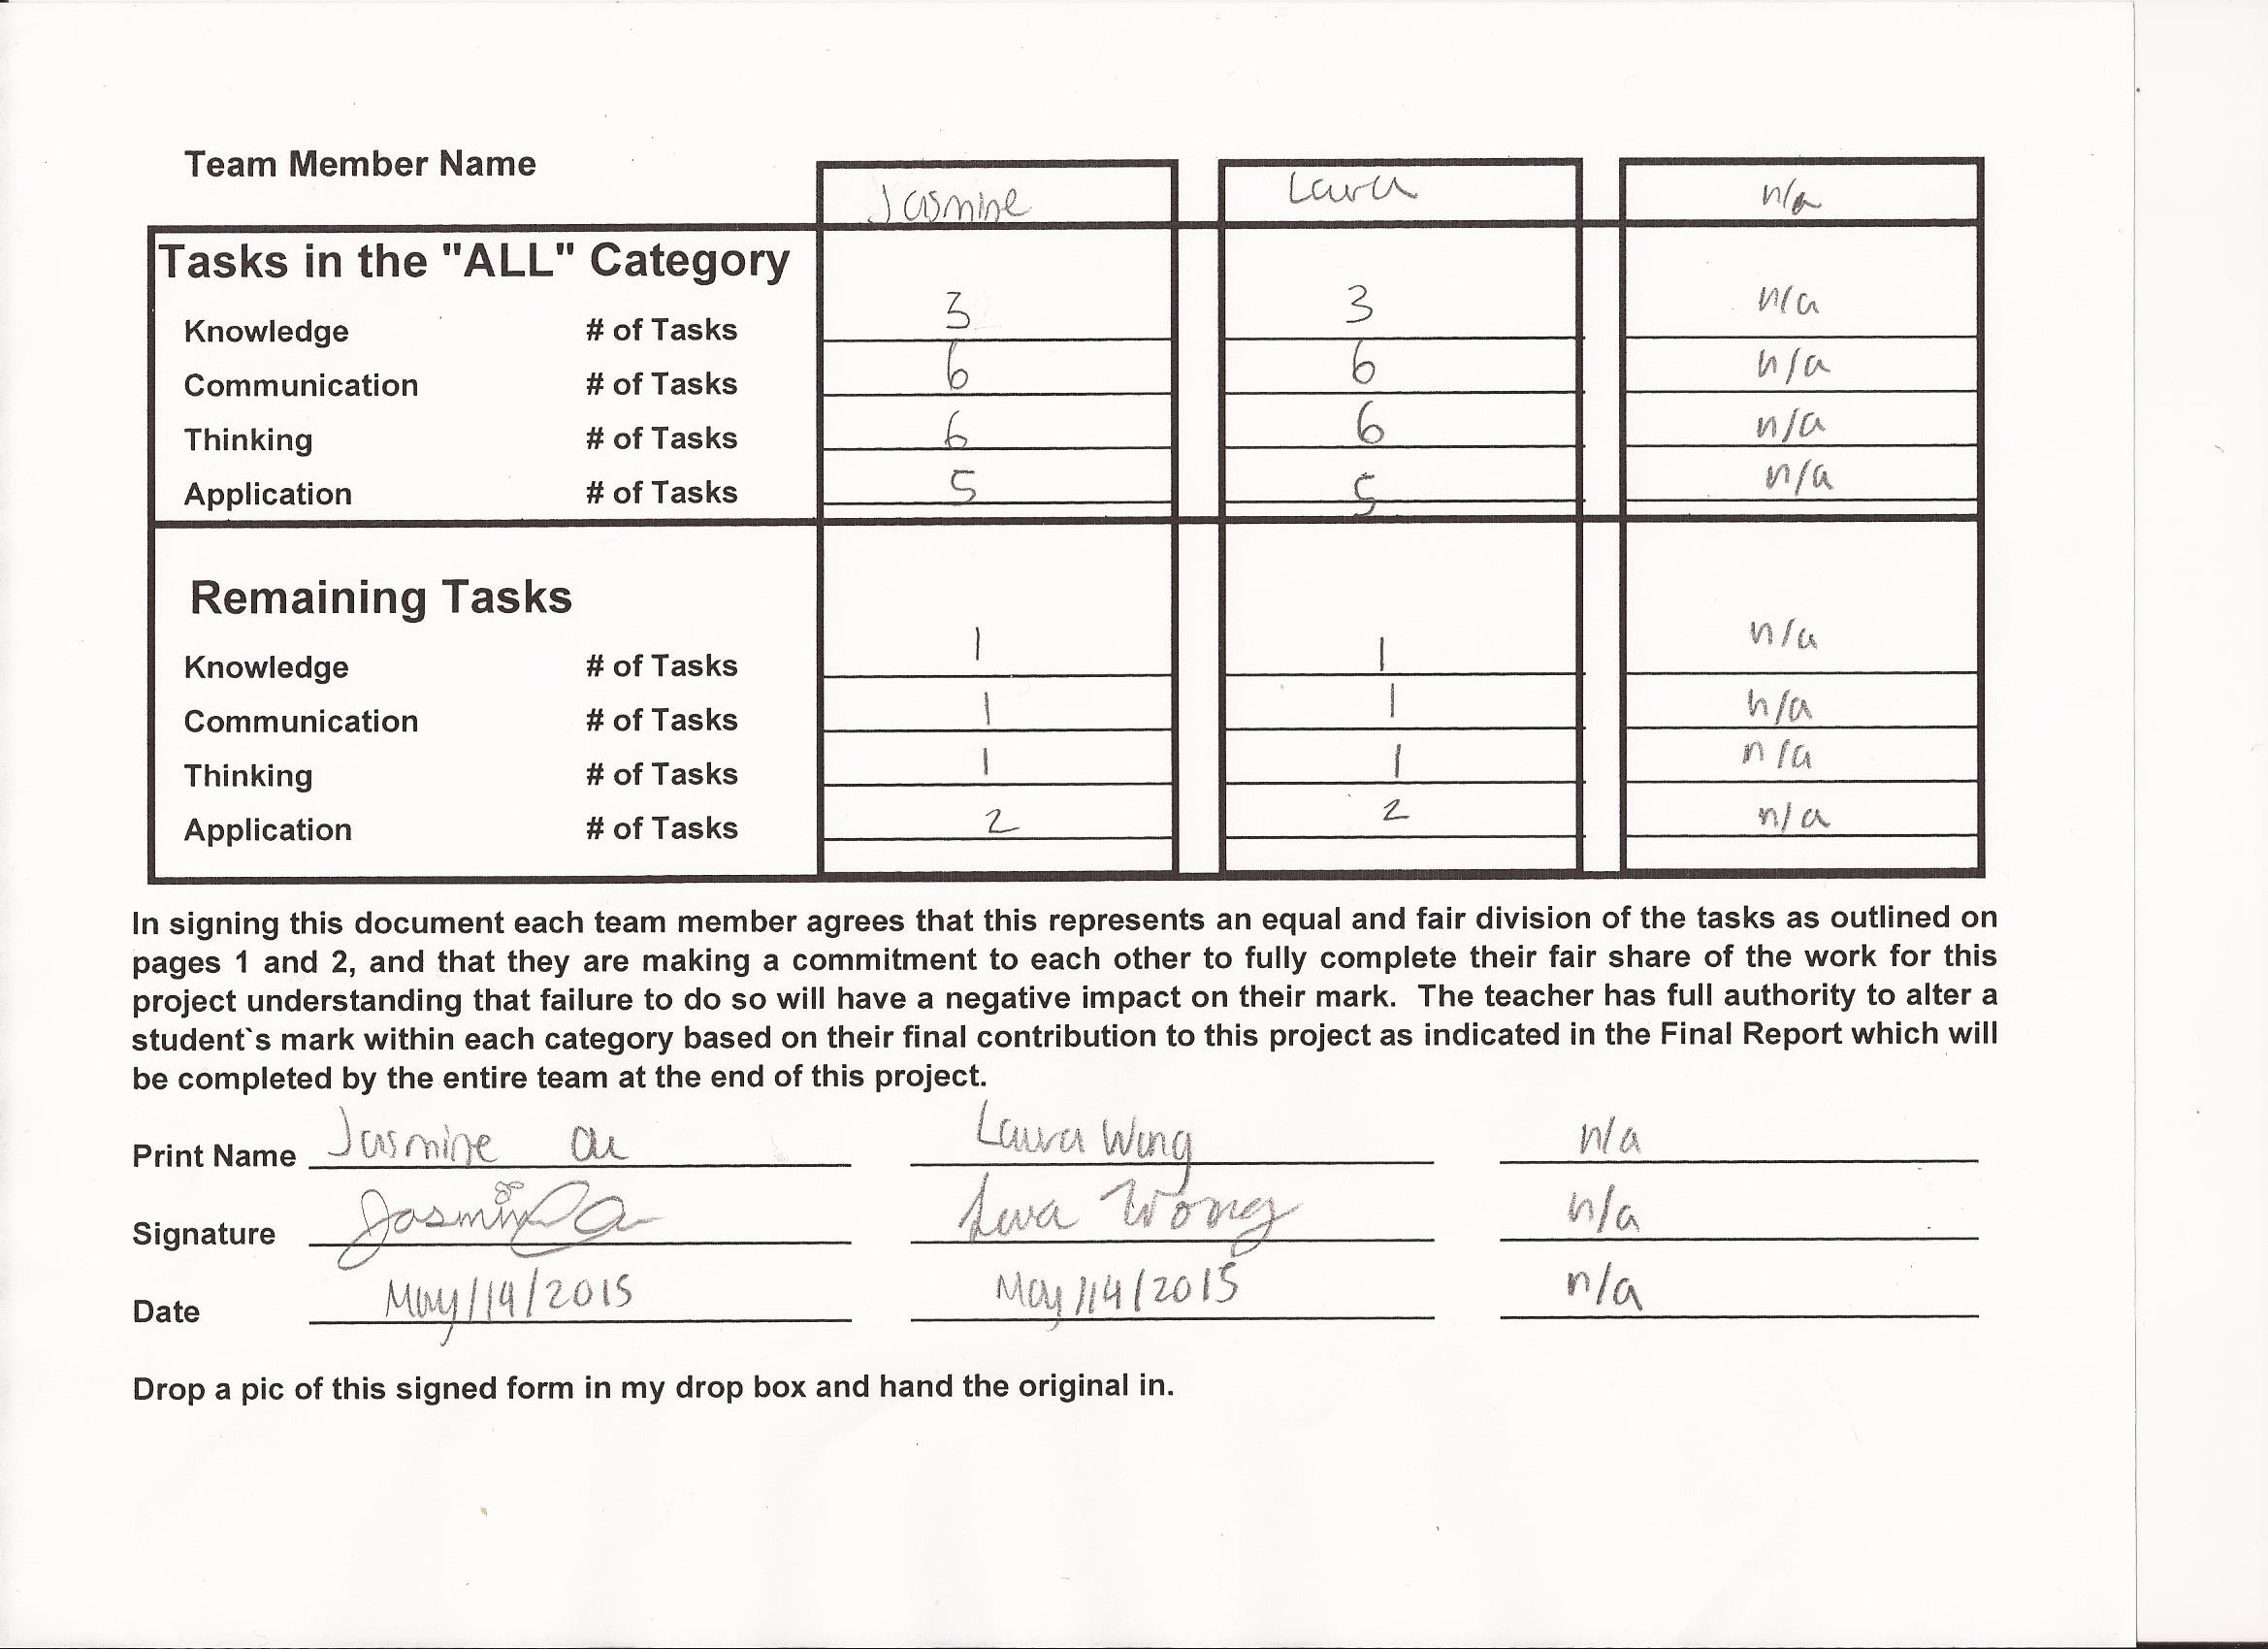 Team Member Name Jasmine Laura n/a
Tasks in the "ALL" Category
Knowledge # of Tasks 3 3 n/a
Communication # of Tasks 6 6 n/a
Thinking # of Tasks 6 6 n/a
Application # of Tasks 5 5 n/a
Remaining Tasks
Knowledge # of Tasks 1 1 n/a
Communication # of Tasks 1 1 n/a
Thinking # of Tasks 1 1 n/a
Application # of Tasks 2 2 n/a
In signing this document each team member agrees that this represents an equal and fair division of the tasks as outlined on
pages 1 and 2, and that they are making a commitment to each other to fully complete their fair share of the work for this
project understanding that failure to do so will have a negative impact on their mark. The teacher has full authority to alter a
student`s mark within each category based on their final contribution to this project as indicated in the Final Report which will
be completed by the entire team at the end of this project.
Print Name Jasmine au Laura Wong n/a
Signature Jasmine Wong n/a
Date May/14/2015 May/14/2015 n/a
Drop a pic of this signed form in my drop box and hand the original in.